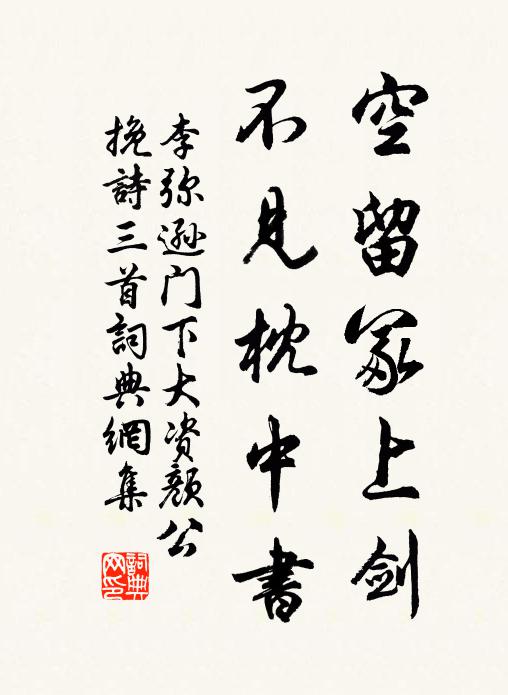 空留冢上剑
不見枕中書
李弥遜门下大资顏公
挽詩三首詞典網集
詞典
网印